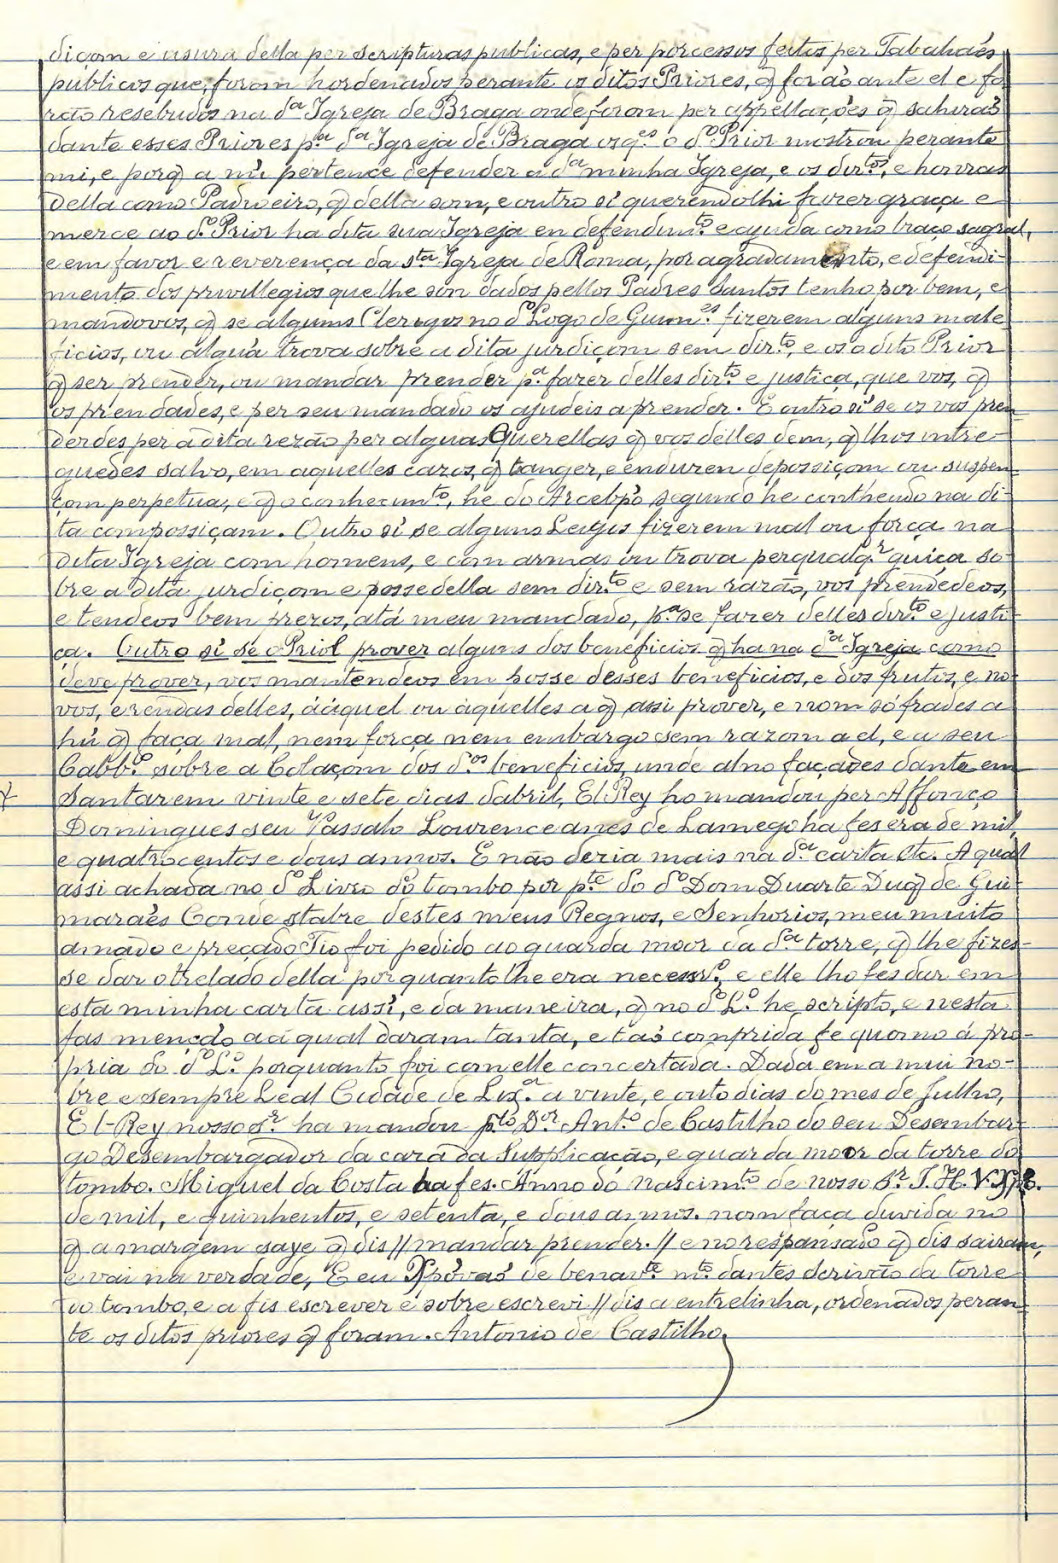 diçom e usura della per scripturas publicas, e per porcessos feitos per Tabaliaẽs
publicos que foram hordenados perante os ditos Priores, q̃ forão ante el e fo
rão resebudos na dª Igreja de Braga onde foram per appellações q̃ sahirão
dante esses Priores pª dª Igreja de Braga os qes o dº Prior mostrou perante
mi, e porq̃ a mi pertence defender a dª minha Igreja, e os dirtos, e honras
della como Padroeiro, q̃ della som, e outro si querendolhi fazer graça e
merce ao dº Prior ha dita sua Igreja en defendimto e ajuda como braço sagral,
e em favor e reverença da sta Igreja de Roma, por agradamento, e defendi-
mento dos privillegios que lhe son dados pellos Padres Santos tenho por bem, e
mandovos, q̃ se alguns Clerigos no dº Logo de Guimes fizerem alguns male
ficios, ou algua trova sobre a dita jurdiçom sem dirto, e os o dito Prior
q̃ ser prender, ou mandar prender pª fazer delles dirto e justiça, que vos, q̃
os prendades, e per seu mandado os ajudeis a prender. E outro si se os vos pren-
derdes per a dita rezão per algunas Querellas q̃ vos delles dem, q̃ lhos intre-
guedes salvo, em aquelles cazos, q̃ tanger, e enduren depossiçom ou suspen-
çom perpetua, e q̃ o conhecimto, he do Arcebpõ segundo he contheudo na di-
ta compossiçam. Outro si se alguns Leigos fizerem mal ou força na
dita Igreja com homens, e com armas ou trova perqualqr guiça so-
bre a dita jurdiçom e posse della sem dirto e sem razão, vos prendedeos,
e tendeos bem prezos, atá meu mandado, pª se fazer delles dirto e justi-
ça. Outro si se o Priol prover alguns dos beneficios q̃ ha na dª Igreja como
deve prover, vos mantendeos em posse desses beneficios, e dos frutos, e no-
vos, e rendas delles, áaquel ou aquelles a q̃ assi prover, e nom sófrades a
hũ q̃ faça mal, nem força nem embargo sem razom a el, e a seu
Cabbº sobre a Colaçom dos dos beneficios, unde al no façades dante em
Santarem vinte e sete dias dabril, El Rey ho mandou per Affonço
Domingues seu Vassalo Lourenceanes de Lamego ha fes era de mil,
e quatrocentos e dous annos. E não deria mais na dª carta etc. A qual
assi achada no dº Livro do tombo por pte do dº Dom Duarte Duq̃ de Gui-
maraẽs Conde stabre destes meus Regnos, e Senhorios, meu muito
amado e preçado Tio foi pedido ao guarda moor da dª torre, q̃ lhe fizes-
se dar o trelado della por quanto lhe era necessrº, e elle lho fes dar em
esta minha carta assi, e da maneira, q̃ no dº Lº he scripto, e nesta
fas menção a a qual daram tanta, e tão comprida fe quomo á pro-
pria do dº Lº porquanto foi com elle concertada. Dada em a mui no-
bre e sempre Leal Cidade de Lixª a vinte, e outo dias do mes de Julho,
El-Rey nosso sr ha mandou pto Dor Antº de Castilho do seu Desembar-
go Desembargador da caza da Supplicação, e guarda moor da torre do
tombo. Miguel da Costa ha fes. Anno do nascimto de nosso Sr. J. H. V. Xp̃õ.
de mil, e quinhentos, e setenta, e dous annos. nom faça duvida no
q̃ a margem saye q̃ dis // mandar prender. // e no respansado q̃ dis sairam,
e vai na verdade, E eu Xp̃ovaõ de benavte mto dantes scrivão da torre
do tombo, e a fis escrever e sobre escrevi // dis a entrelinha, ordenados peran-
te os ditos priores q̃ foram. Antonio de Castilho.